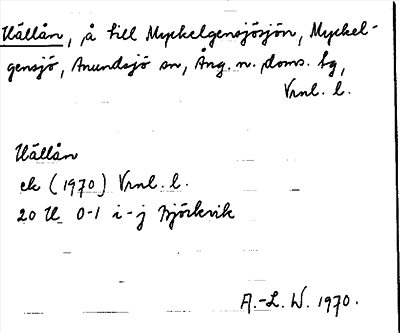 Hällån, å till Myckelgensjösjön, Myckel-
gensjö, Anundsjö sn, Ång. n. doms. bg,
Vnl. l.
Hällån
ek (1970) Vnl. l.
20 H 0-1 i-j Björkvik
A.-L. W. 1970.